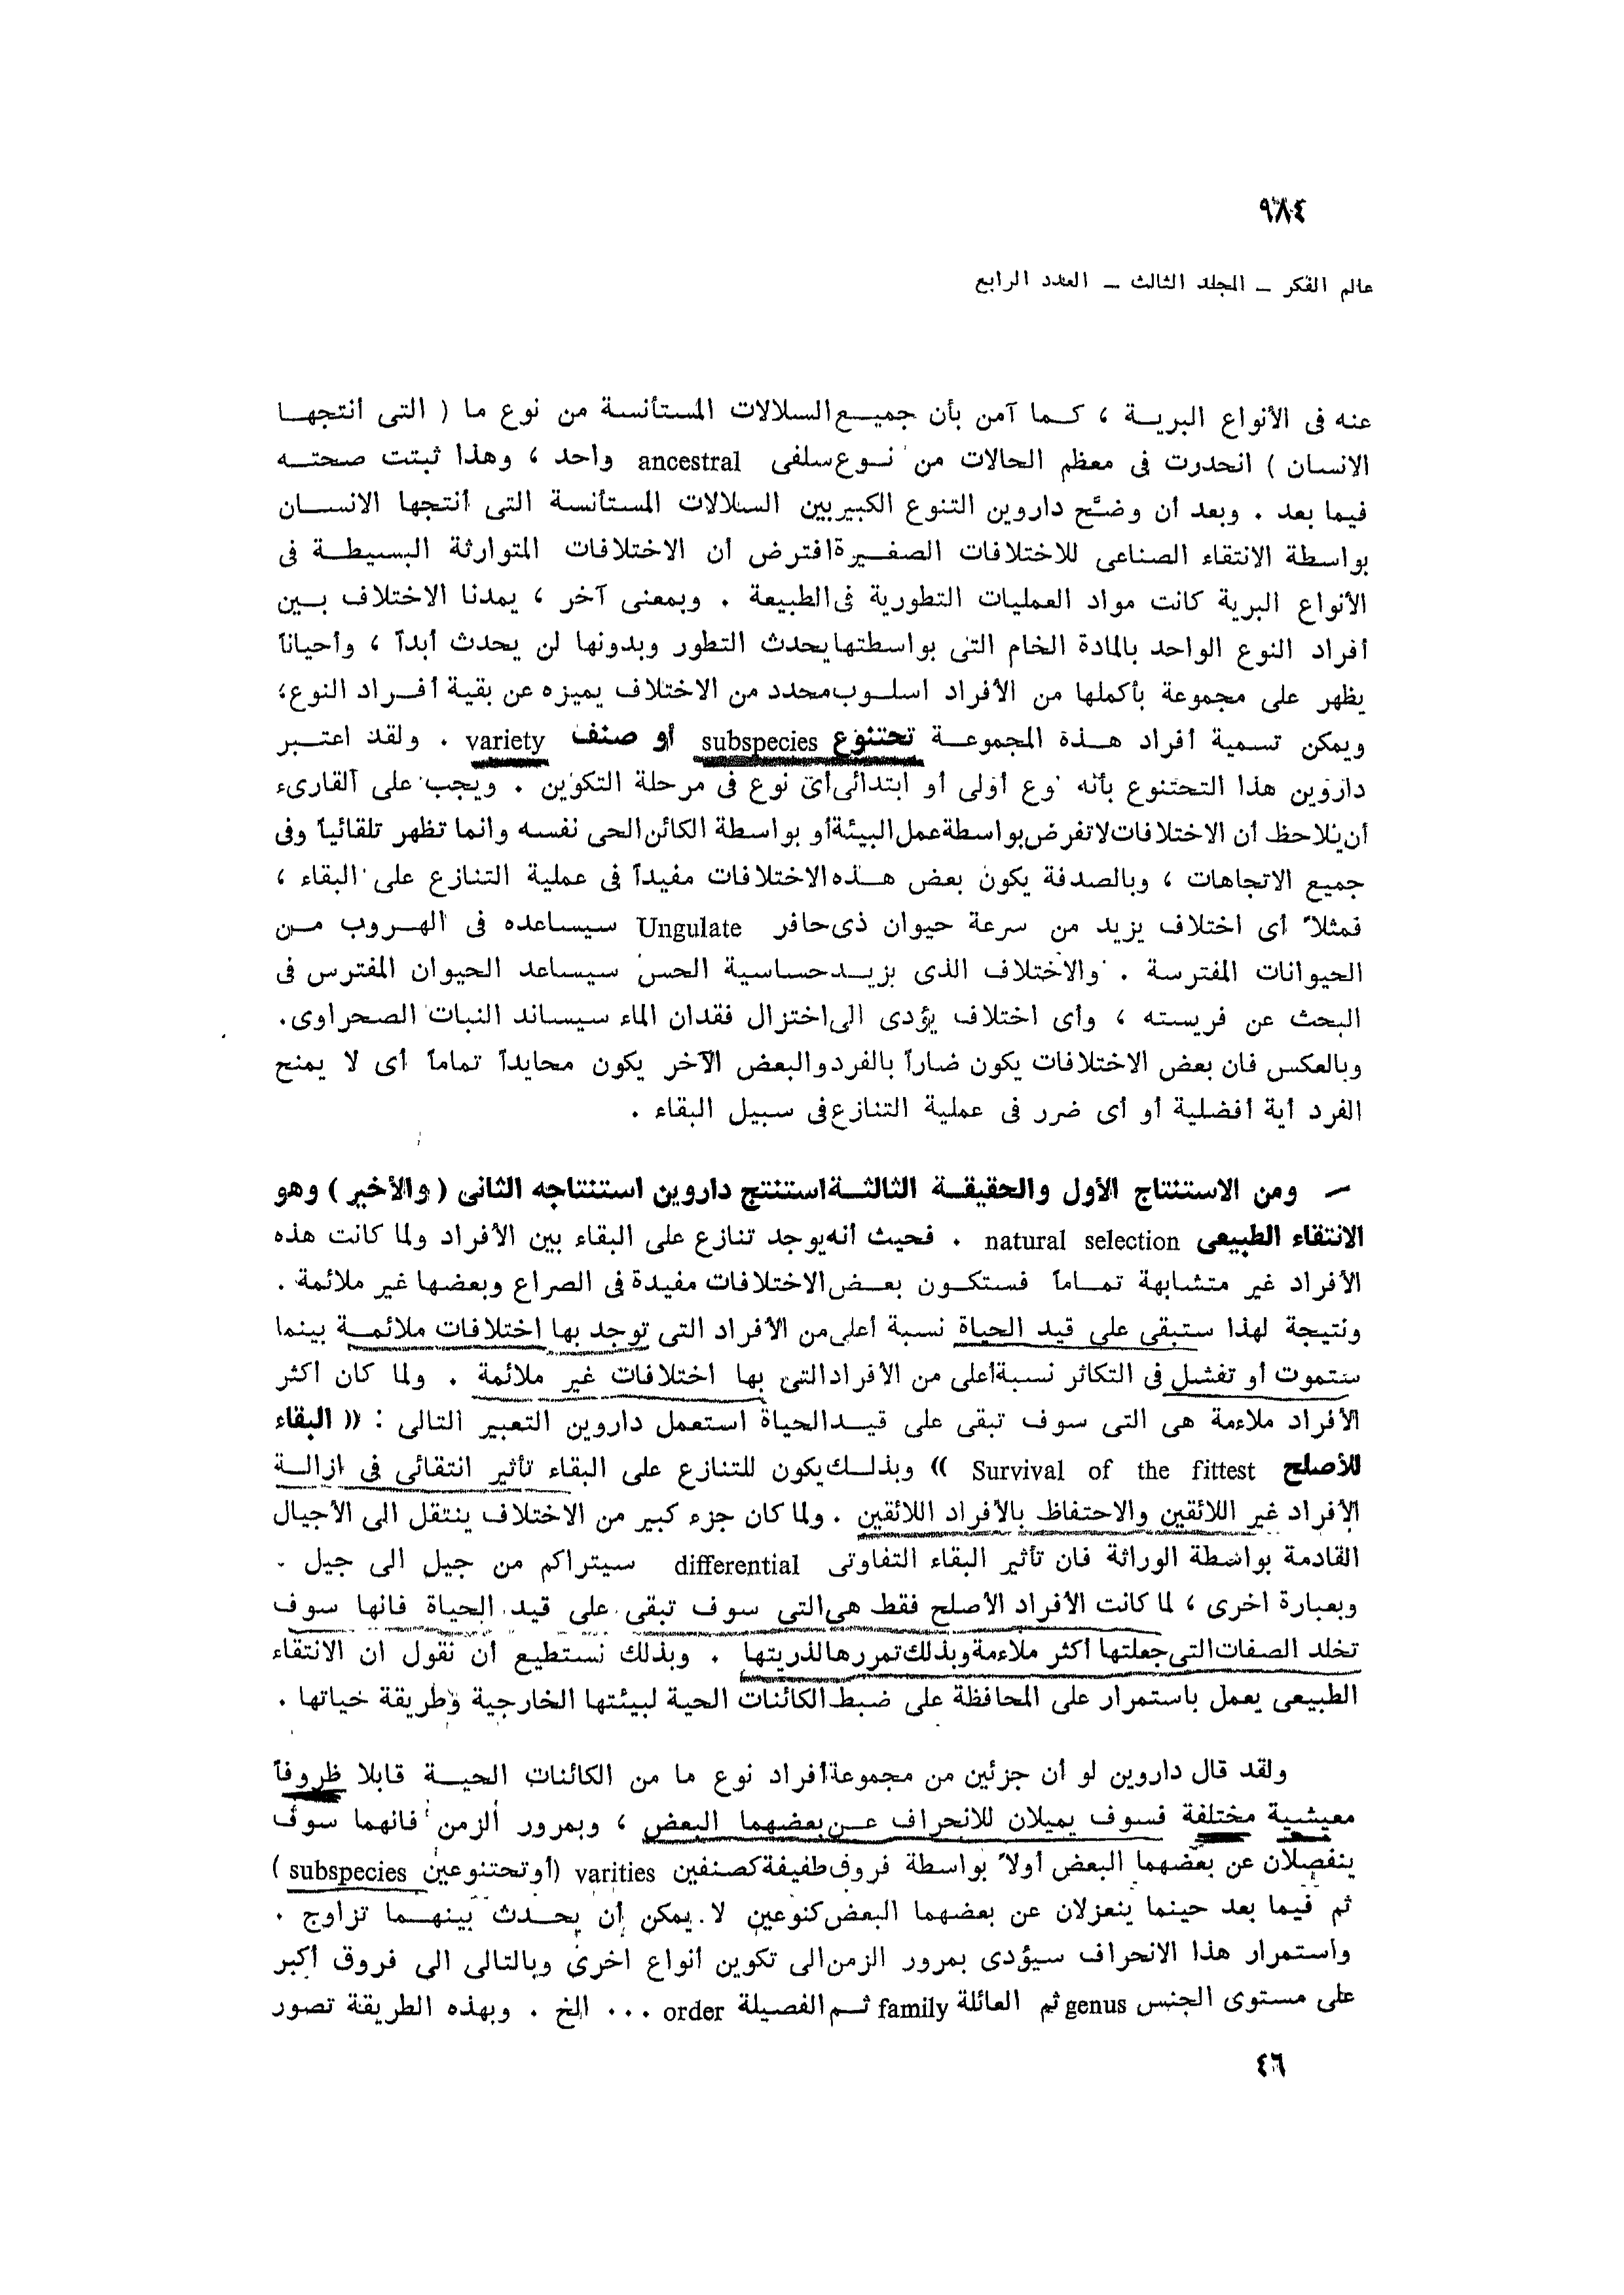 ٩٨٤
عالم الفكر ــ المجلد الثالث ــ العدد الرابع
عنه فى الأنواع البرية ، كما آمن بأن جميع السلالات المستأنسة من نوع ما ( التى أنتجها
الانسان ) انحدرت فى معظم الحالات من نوع سلفى ancestral واحد ، وهذا ثبتت صحته
فيما بعد . وبعد أن وضَّح داروين التنوع الكبير بين السلالات المستأنسة التى أنتجها الانسان
بواسطة الانتقاء الصناعى للاختلافات الصغيرة افترض أن الاختلافات المتوارثة البسيطة فى
الأنواع البرية كانت مواد العمليات التطورية فى الطبيعة . وبمعنى آخر ، يمدنا الاختلاف بين
أفراد النوع الواحد بالمادة الخام التى بواسطتها يحدث التطور وبدونها لن يحدث أبداً ، وأحياناً
يظهر على مجموعة بأكملها من الأفراد اسلوب محدد من الاختلاف يميزه عن بقية أفراد النوع ؛
ويمكن تسمية أفراد هذه المجموعة تحتنوع subspecies أو صنف variety . ولقد اعتبر
داروين هذا التحتنوع بأنه نوع أولى أو ابتدائى أى نوع فى مرحلة التكوين . ويجب على القارىء
أن يلاحظ أن الاختلافات لا تفرض بواسطة عمل البيئة أو بواسطة الكائن الحى نفسه وانما تظهر تلقائياً وفى
جميع الاتجاهات ، وبالصدفة يكون بعض هذه الاختلافات مفيداً فى عملية التنازع على البقاء ،
فمثلاً أى اختلاف يزيد من سرعة حيوان ذى حافر Ungulate سيساعده فى الهروب من
الحيوانات المفترسة . والاختلاف الذى يزيد حساسية الحس سيساعد الحيوان المفترس فى
البحث عن فريسته ، وأى اختلاف يؤدى الى اختزال فقدان الماء سيساند النبات الصحراوى .
وبالعكس فان بعض الاختلافات يكون ضاراً بالفرد والبعض الآخر يكون محايداً تماماً أى لا يمنح
الفرد أية أفضلية أو أى ضرر فى عملية التنازع فى سبيل البقاء .
ــ ومن الاستنتاج الأول والحقيقة الثالثة استنتج داروين استنتاجه الثانى ( والأخير ) وهو
الانتقاء الطبيعى natural selection . فحيث أنه يوجد تنازع على البقاء بين الأفراد ولما كانت هذه
الأفراد غير متشابهة تماماً فستكون بعض الاختلافات مفيدة فى الصراع وبعضها غير ملائمة .
ونتيجة لهذا ستبقى على قيد الحياة نسبة أعلى من الأفراد التى توجد بها اختلافات ملائمة بينما
ستموت أو تفشل فى التكاثر نسبة أعلى من الأفراد التى بها اختلافات غير ملائمة . ولما كان أكثر
الأفراد ملاءمة هى التى سوف تبقى على قيد الحياة استعمل داروين التعبير التالى : « البقاء
للأصلح Survival of the fittest » وبذلك يكون للتنازع على البقاء تأثير انتقائى فى ازالة
الأفراد غير اللائقين والاحتفاظ بالأفراد اللائقين . ولما كان جزء كبير من الاختلاف ينتقل الى الأجيال
القادمة بواسطة الوراثة فان تأثير البقاء التفاوتى differential سيتراكم من جيل الى جيل .
وبعبارة اخرى ، لما كانت الأفراد الأصلح فقط هى التى سوف تبقى على قيد الحياة فانها سوف
تخلد الصفات التى جعلتها أكثر ملاءمة وبذلك تمررها لذريتها . وبذلك نستطيع أن نقول ان الانتقاء
الطبيعى يعمل باستمرار على المحافظة على ضبط الكائنات الحية لبيئتها الخارجية وطريقة حياتها .
ولقد قال داروين لو أن جزئين من مجموعة أفراد نوع ما من الكائنات الحية قابلا ظروفاً
معيشية مختلفة فسوف يميلان للانحراف عن بعضهما البعض ، وبمرور الزمن فانهما سوف
ينفصلان عن بعضهما البعض أولاً بواسطة فروق طفيفة كصنفين varities (أو تحتنوعين subspecies )
ثم فيما بعد حينما ينعزلان عن بعضهما البعض كنوعين لا يمكن أن يحدث بينهما تزاوج .
واستمرار هذا الانحراف سيؤدى بمرور الزمن الى تكوين أنواع اخرى وبالتالى الى فروق أكبر
على مستوى الجنس genus ثم العائلة family ثم الفصيلة order ... الخ . وبهذه الطريقة تصور
٤٦